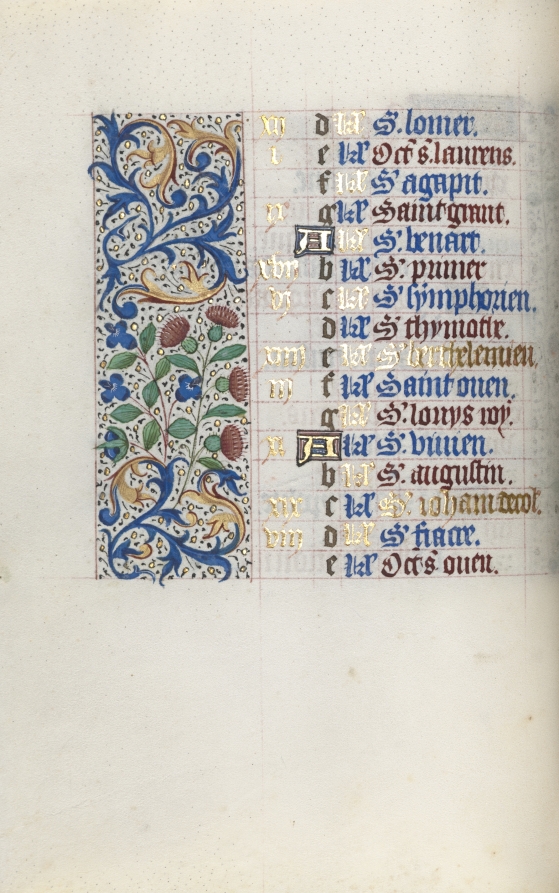 xij d kł S. lomer.
i e kł Oct s. laurens.
f kł S. agapit.
ix g kł Saint graut.
A kł S. benart.
xvij b kł S. priuier
vj c kł S. symphorien.
d kł S. thymotie.
xiiij e kł S. berthelemieu.
iij f kł Saint ouen.
g kł S. louys roy.
xi A kł S. viuien.
b kł S. augustin.
xix c kł S. iohan decol.
viij d kł S. fiacre.
e kł Oct s. ouen.